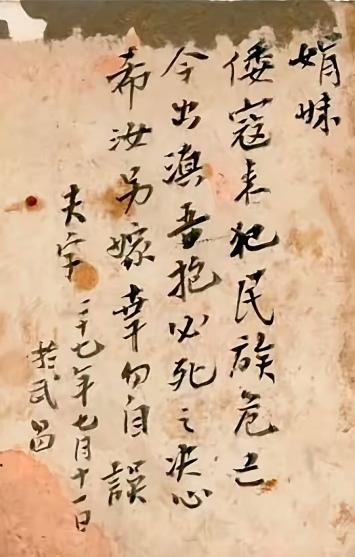 娟妹
倭寇来犯民族危亡
今出滇吾抱必死之决心
希汝另嫁幸勿自误
夫字 二十七年七月十一日
於武昌